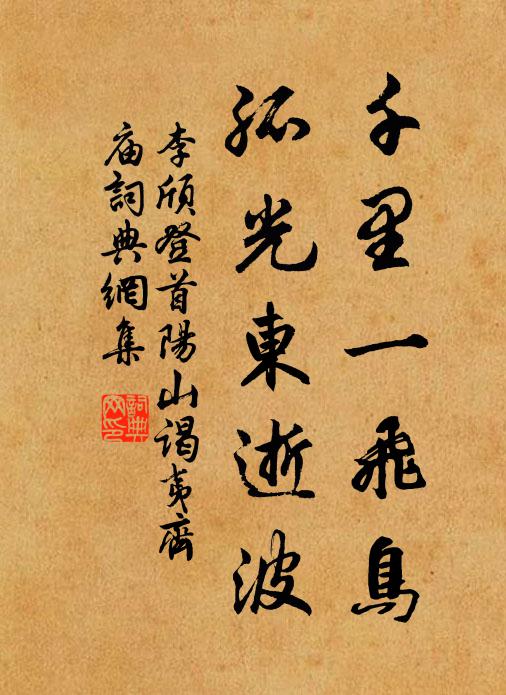 千里一飛鳥
孤光東逝波
李頎登首陽山謁夷齊
廟詞典網集
詞典
网印